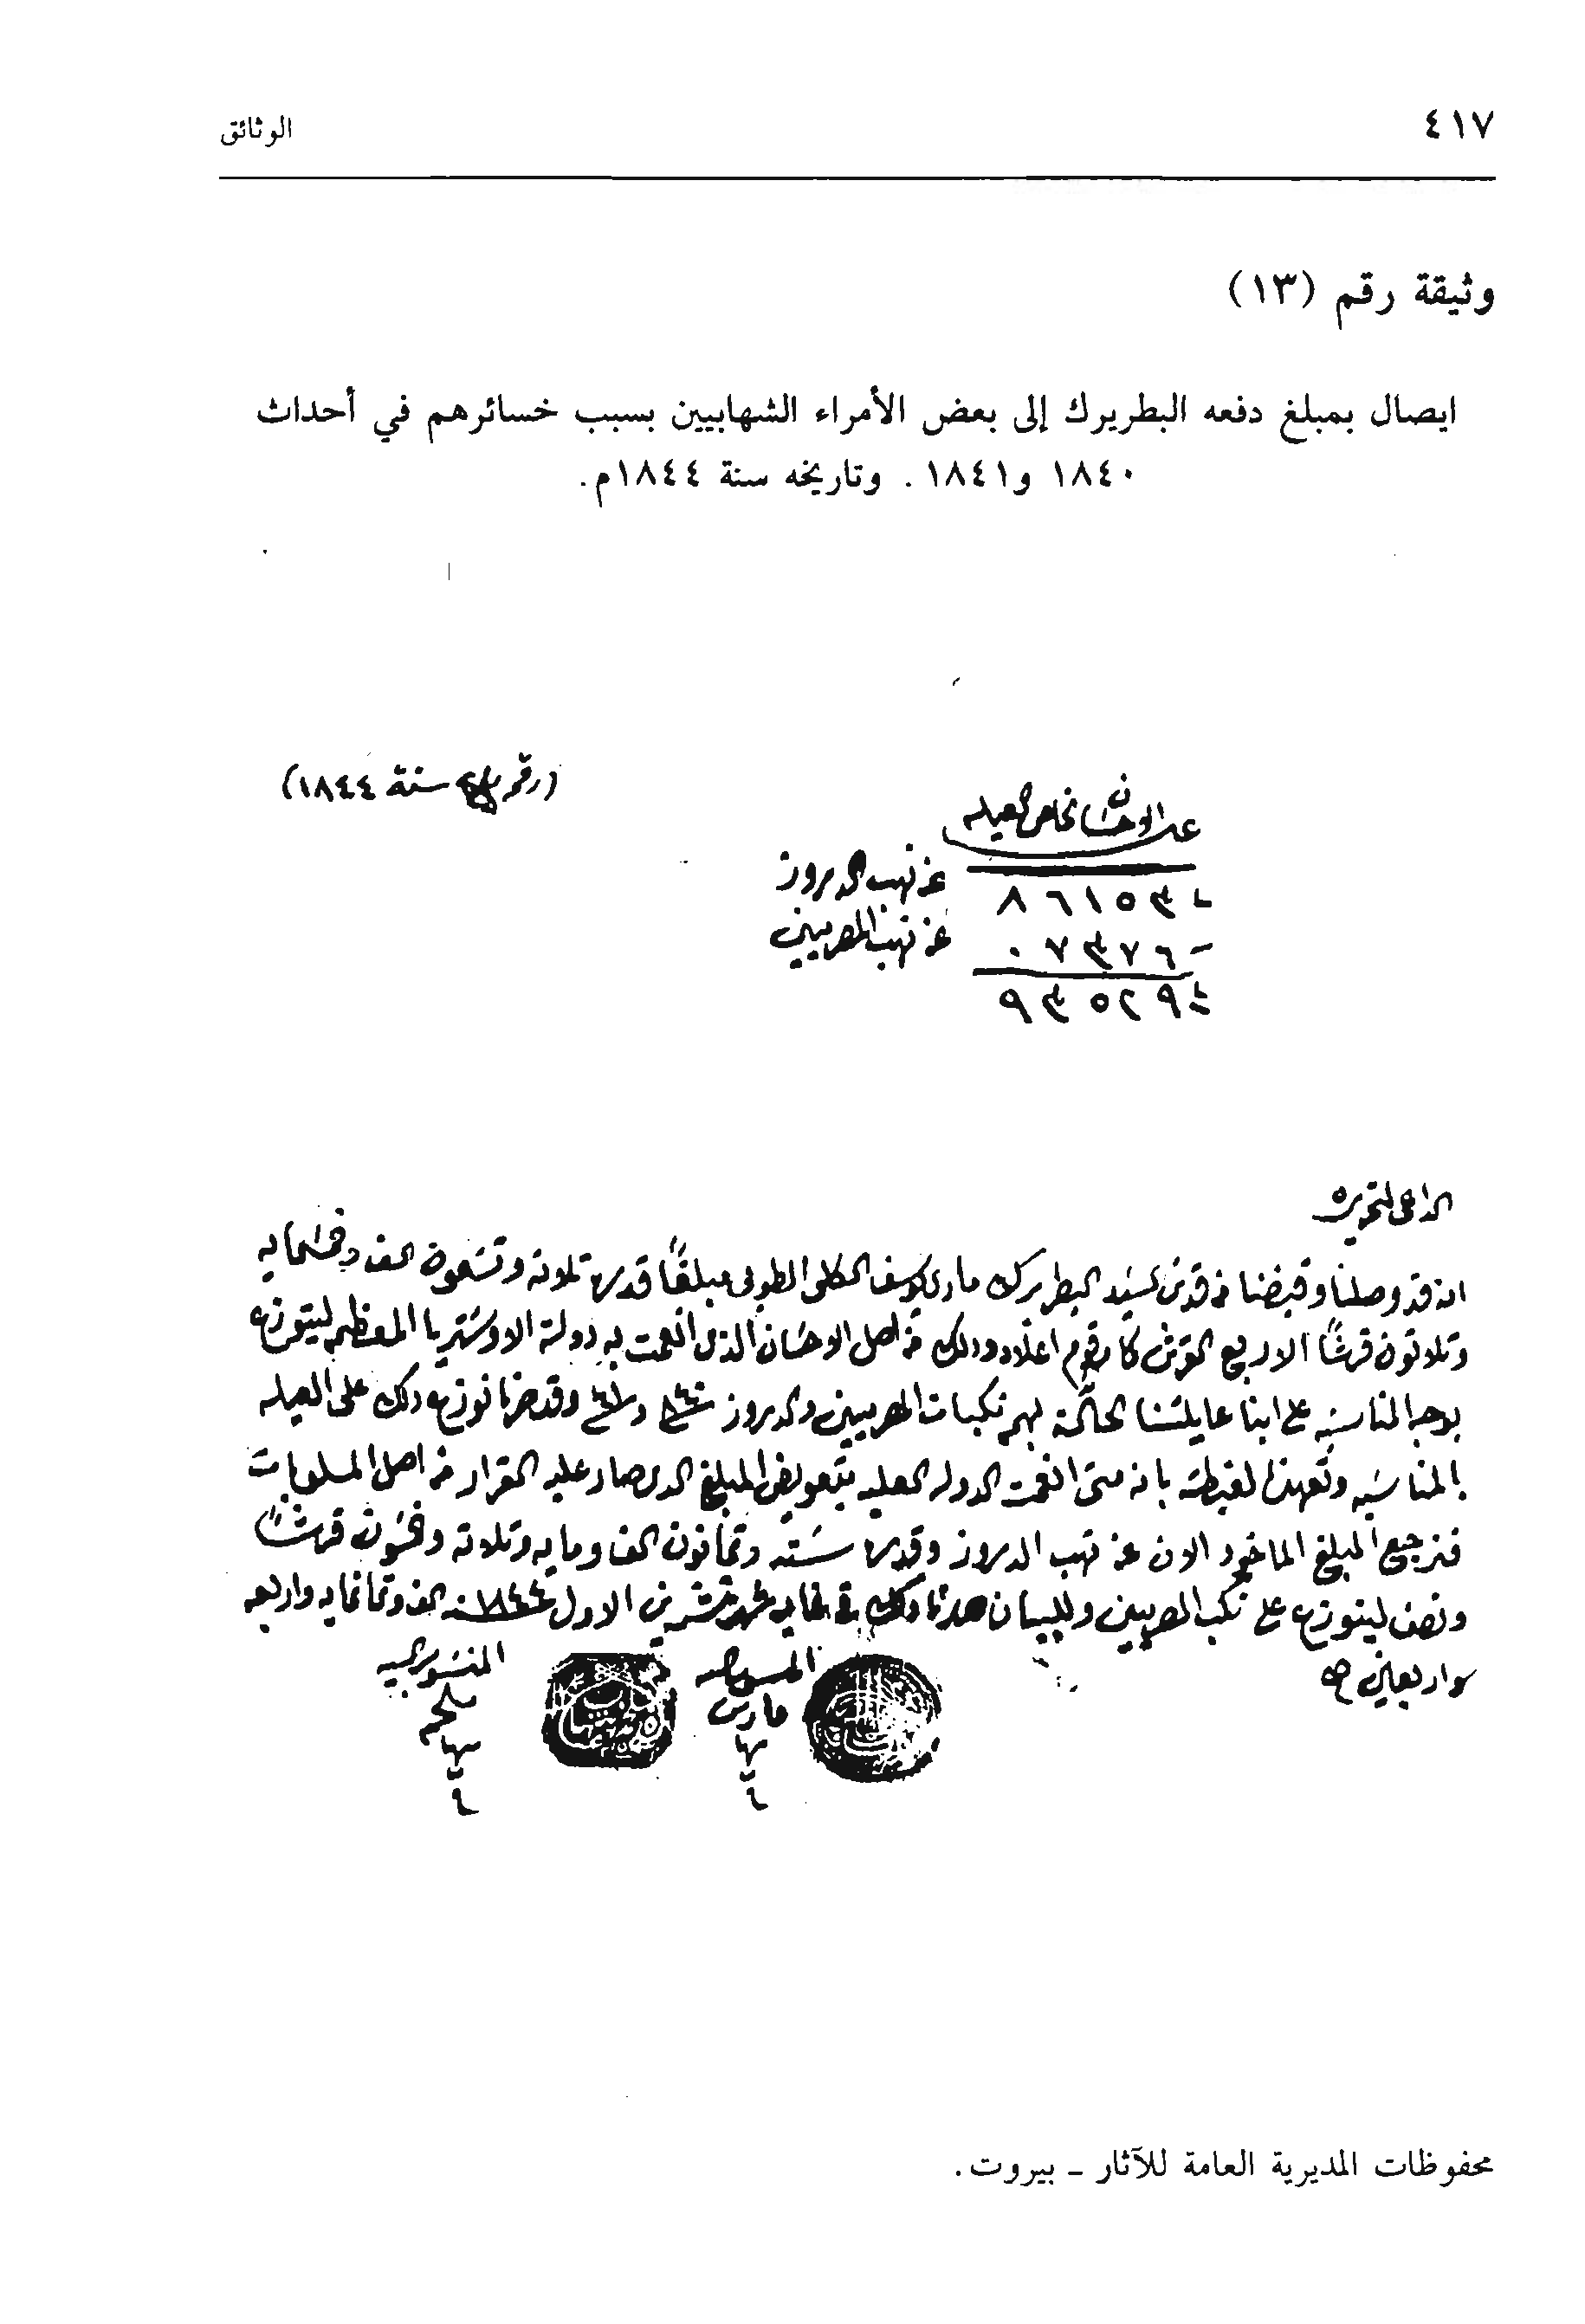 ٤١٧
الوثائق
وثيقة رقم (١٣)
ايصال بمبلغ دفعه البطريرك إلى بعض الأمراء الشهابيين بسبب خسائرهم في أحداث
١٨٤٠ و١٨٤١. وتاريخه سنة ١٨٤٤م.
سنة ١٨٤٤)
عن الاحسان
٨٦١٥٣ عن نهب الدروز
٠٧٣٧٦ عن نهب المصريين
٩٣٥٢٩
الداعي لتحريره
انه قد وصلنا وقبضنا من قدس السيد البطريرك ماري يوسف الكلي الطوبى مبلغاً قدره تلاته وتسعون الف وخمسمايه
وتلاتون قرشاً الا ربع القرش كما مرقوم اعلاه ودالك من اصل الاحسان الذي انعمت به دولة الاوستريا المعظمه ليتوزع
بوجه المناسبه على ابنا عايلتنا الحالّة بهم نكبات المصريين والدروز سنة وقد حزنا توزيع دلك على العيله
بالمناسبه وتعهدنا لغبطته بانه متى انعمت الدوله العليه بتعويض المبلغ الدي صار عليه القرار من اصل المسلوبات
فنرجع المبلغ الماخود الان عن نهب الدروز وقدره سته وتمانون الف ومايه وتلاته وخمسون قرشاً
ونصف ليتوزع على نكب المصريين وللبيان حررنا دلك في شهر تشرين الاول سنة ١٨٤٤ الف وتمانمايه واربعه
واربعين صح
ملحم
فارس
شهاب
شهاب
محفوظات المديرية العامة للآثار ـ بيروت.